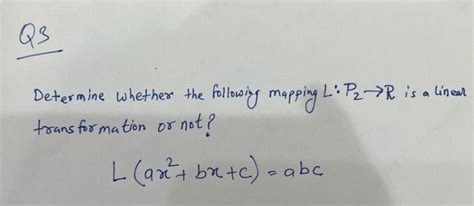 Q3
Determine whether the following mapping L: P₂→R is a linear
transformation or not?
L(ax²+bx+c) = abc